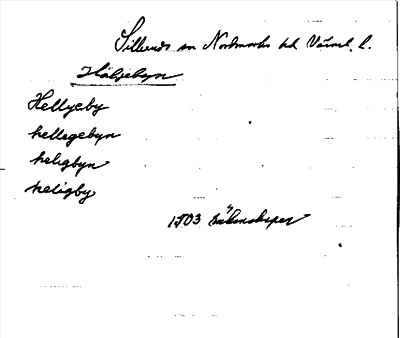 Sillerud sn Nordmarks hd Värml. l.
Häljebyn
Hellyeby
hellegebyn
heligbyn
heligby
1503 räkenskaper